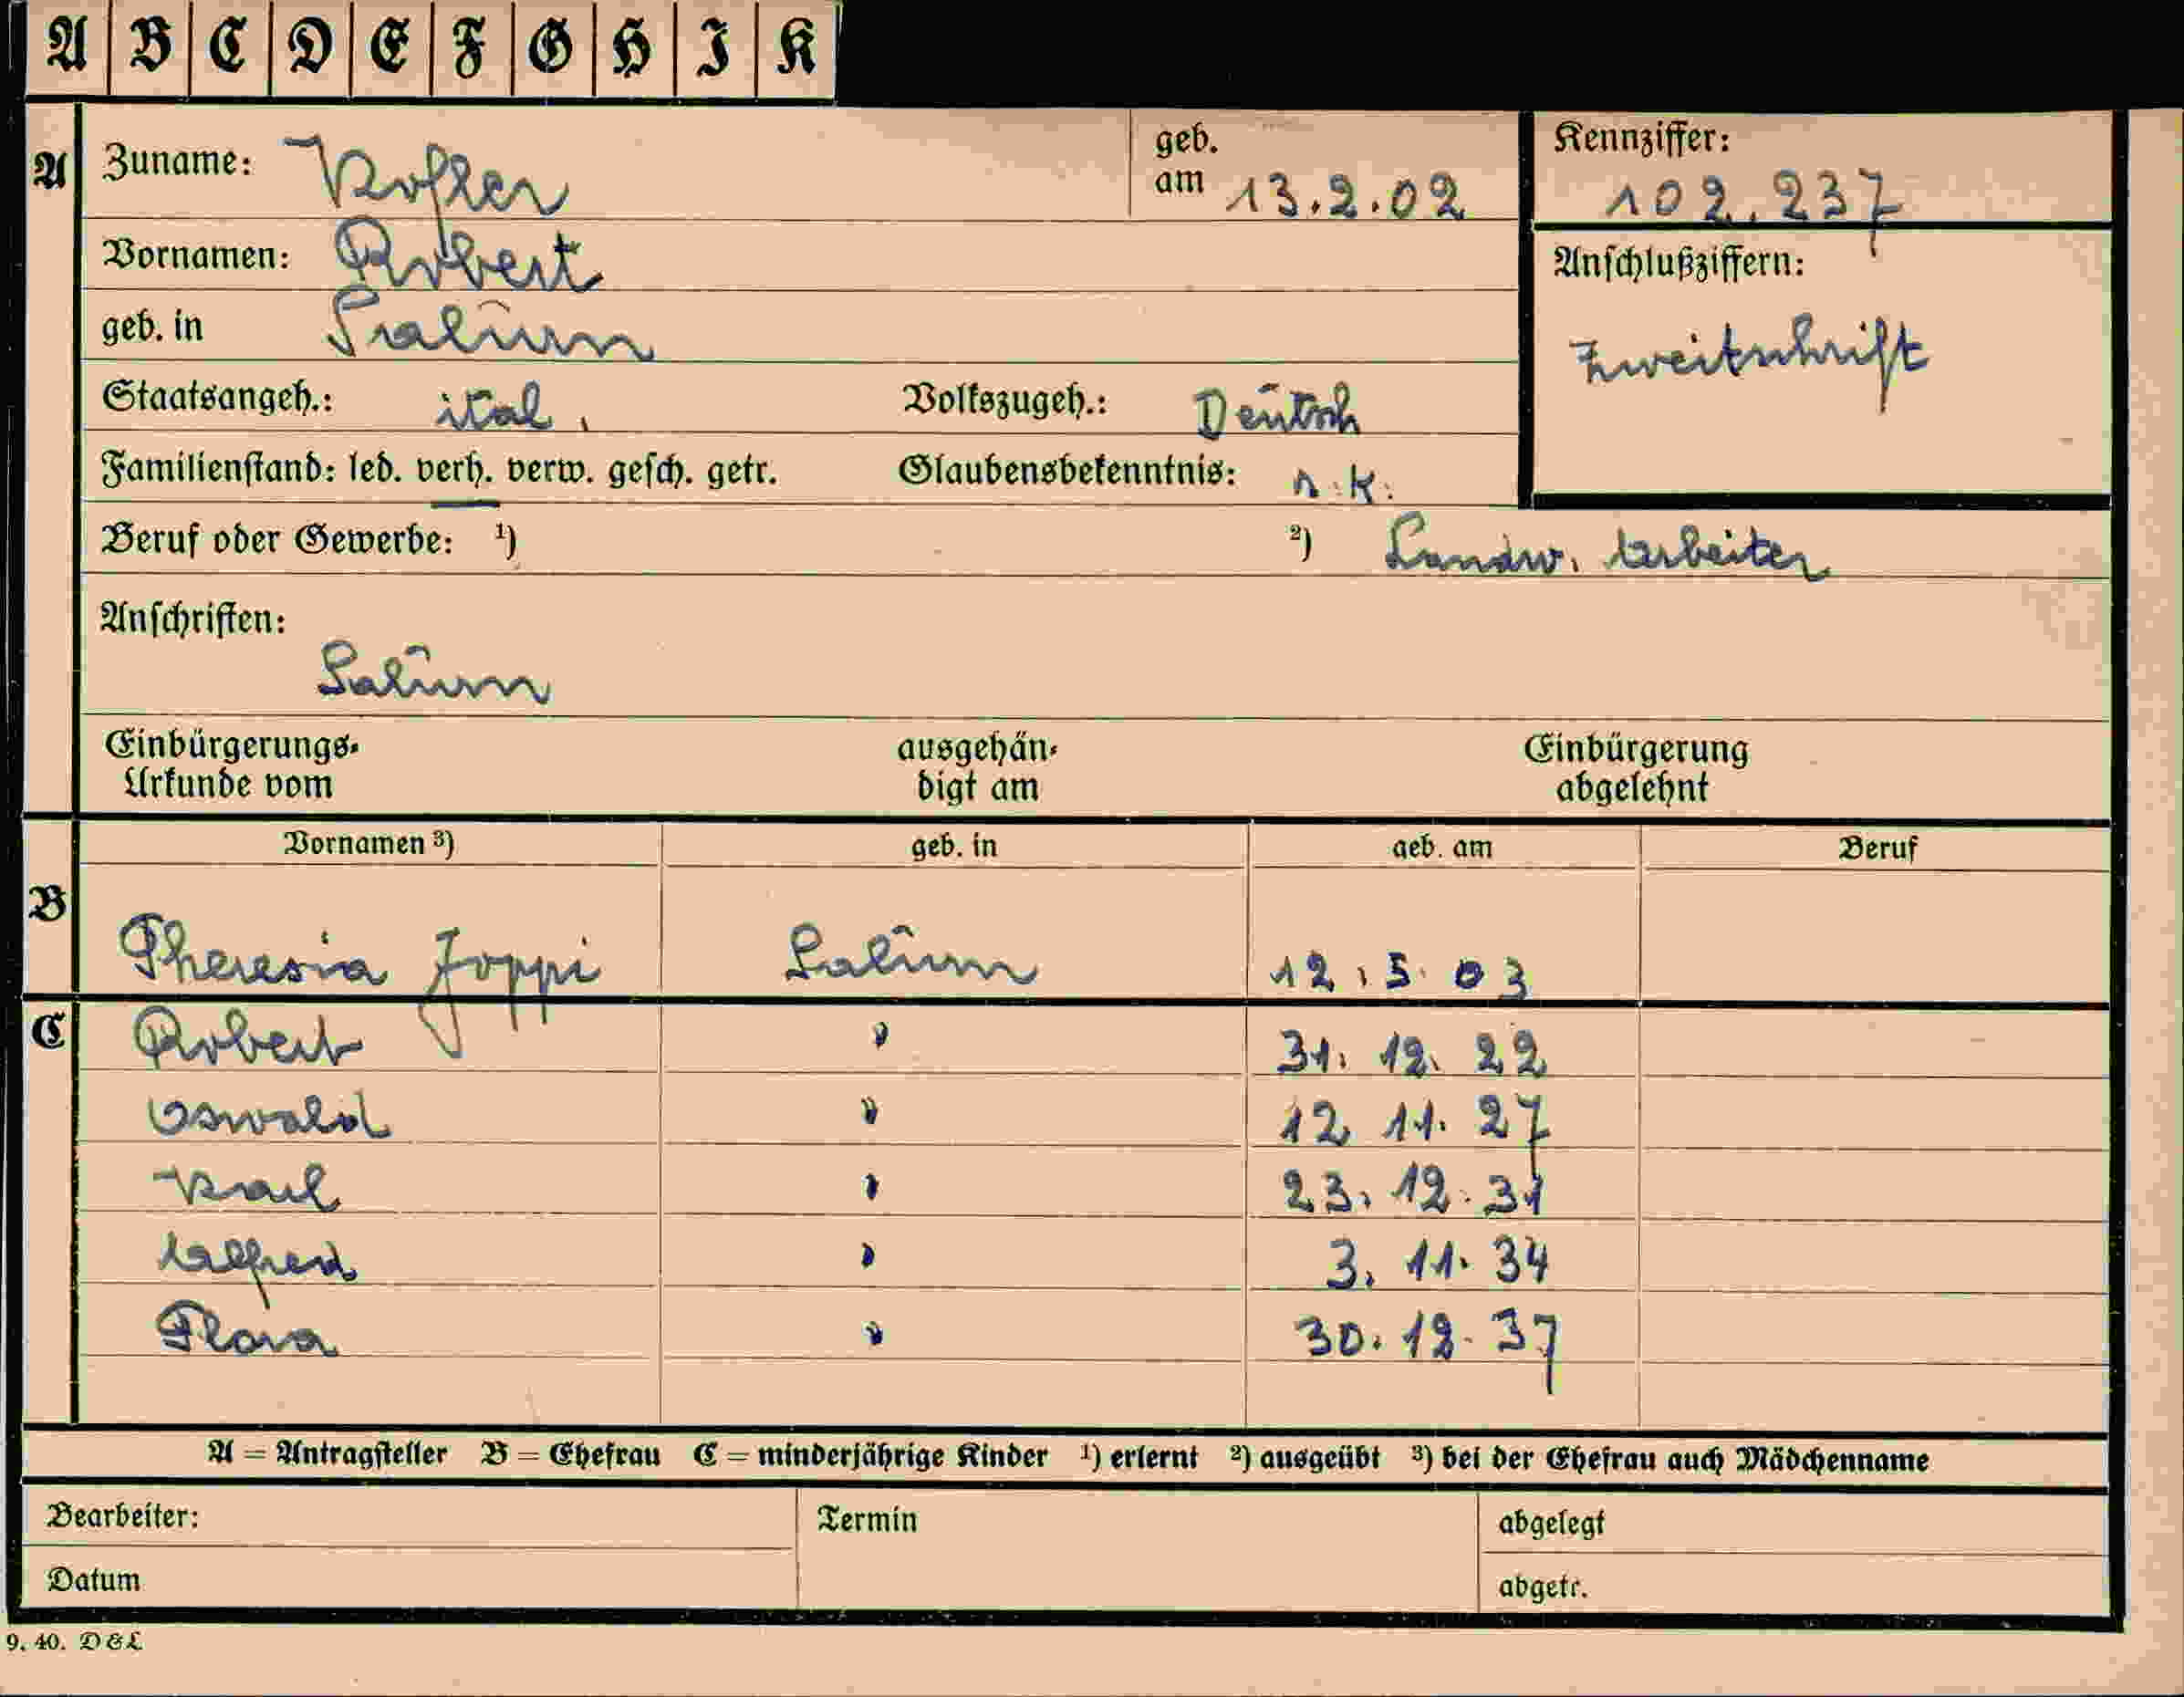 A B C D E F G H I K
A Zuname: Kofler geb. am 13.2.02 Kennziffer: 102.237
Vornamen: Robert Anschlußziffern:
geb. in Salurn Zweitschrift
Staatsangeh.: ital. Volkszugeh.: Deutsch
Familienstand: led. verh. verw. gesch. getr. Glaubensbekenntnis: r.k.
Beruf oder Gewerbe: ¹) ²) Landw. Arbeiter
Anschriften:
Salurn
Einbürgerungs- ausgehän- Einbürgerung
Urkunde vom digt am abgelehnt
Vornamen ³) geb. in geb. am Beruf
B Theresia Joppi Salurn 12.5.03
C Robert " 31.12.22
Oswald " 12 11. 27
Karl " 23.12.31
Alfred " 3.11.34
Flora " 30.12.37
A = Antragsteller B = Ehefrau C = minderjährige Kinder ¹) erlernt ²) ausgeübt ³) bei der Ehefrau auch Mädchenname
Bearbeiter: Termin abgelegt
Datum abgetr.
9. 40. D & L